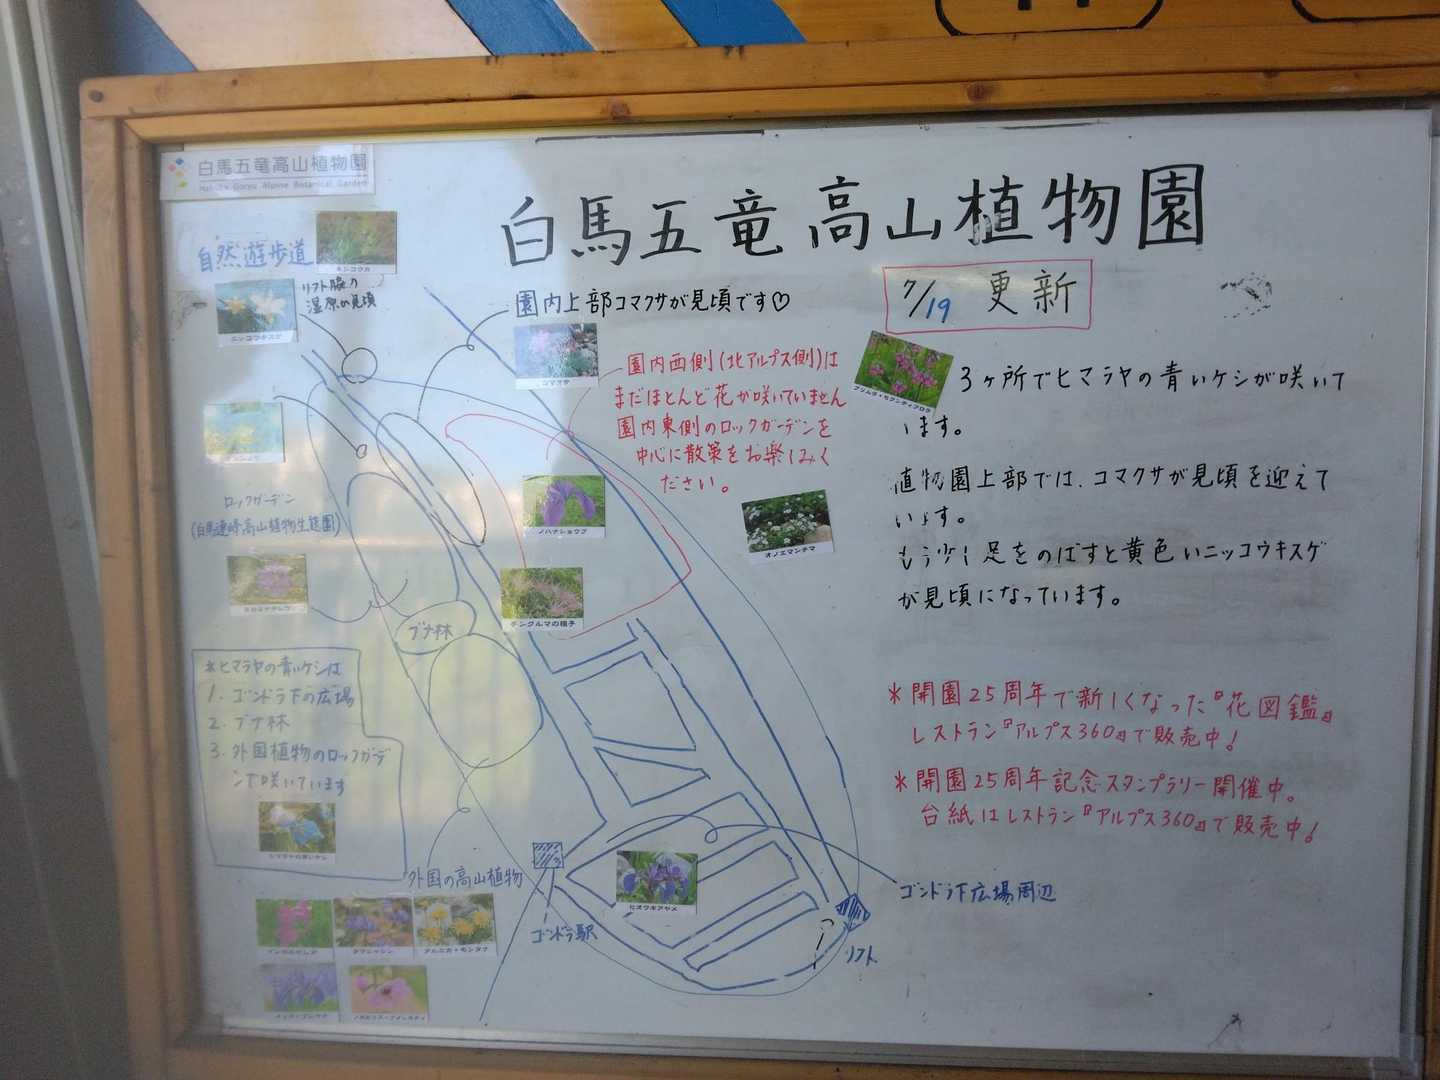 白馬五竜高山植物園
Hakuba Goryu Alpine Botanical Garden
白馬五竜高山植物園
7/19 更新
自然遊歩道
キンコウカ
リフト脇の
湿原の見頃
ニッコウキスゲ
園内上部コマクサが見頃です♡
コマクサ
園内西側(北アルプス側)は
まだほとんど花が咲いていません
園内東側のロックガーデンを
中心に散策をお楽しみく
ださい。
3ヶ所でヒマラヤの青いケシが咲いて
います。
植物園上部では、コマクサが見頃を迎えて
います。
もう少し足をのばすと黄色いニッコウキスゲ
が見頃になっています。
ロックガーデン
(白馬連峰高山植物生態園)
ノハナショウブ
オノエマンテマ
チングルマの穂子
ブナ林
*ヒマラヤの青いケシは
1. ゴンドラ下の広場
2. ブナ林
3. 外国植物のロックガーデ
ンで咲いています
ヒマラヤの青いケシ
*開園25周年で新しくなった『花図鑑』
レストラン『アルプス360』で販売中!
*開園25周年記念スタンプラリー開催中。
台紙はレストラン『アルプス360』で販売中!
外国の高山植物
ヒオウギアヤメ
ゴンドラ下広場周辺
ゴンドラ駅
リフト
アルニカ・モンタナ